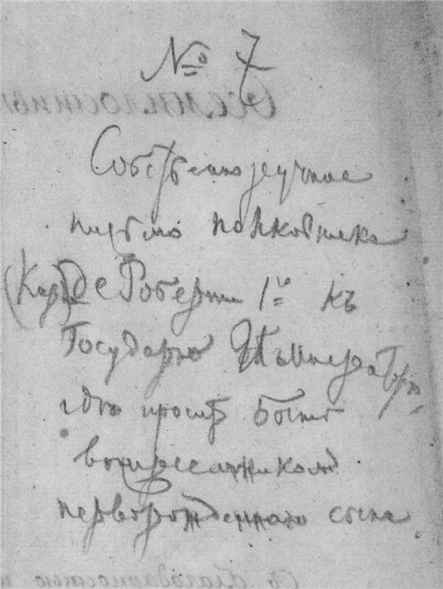 № 7
Собственноручное
письмо полковника
(Карл) Де Роберти 1го къ
Государю Императору,
гдѣ проситъ быть
воспрiемникомъ
перворожденнаго сына